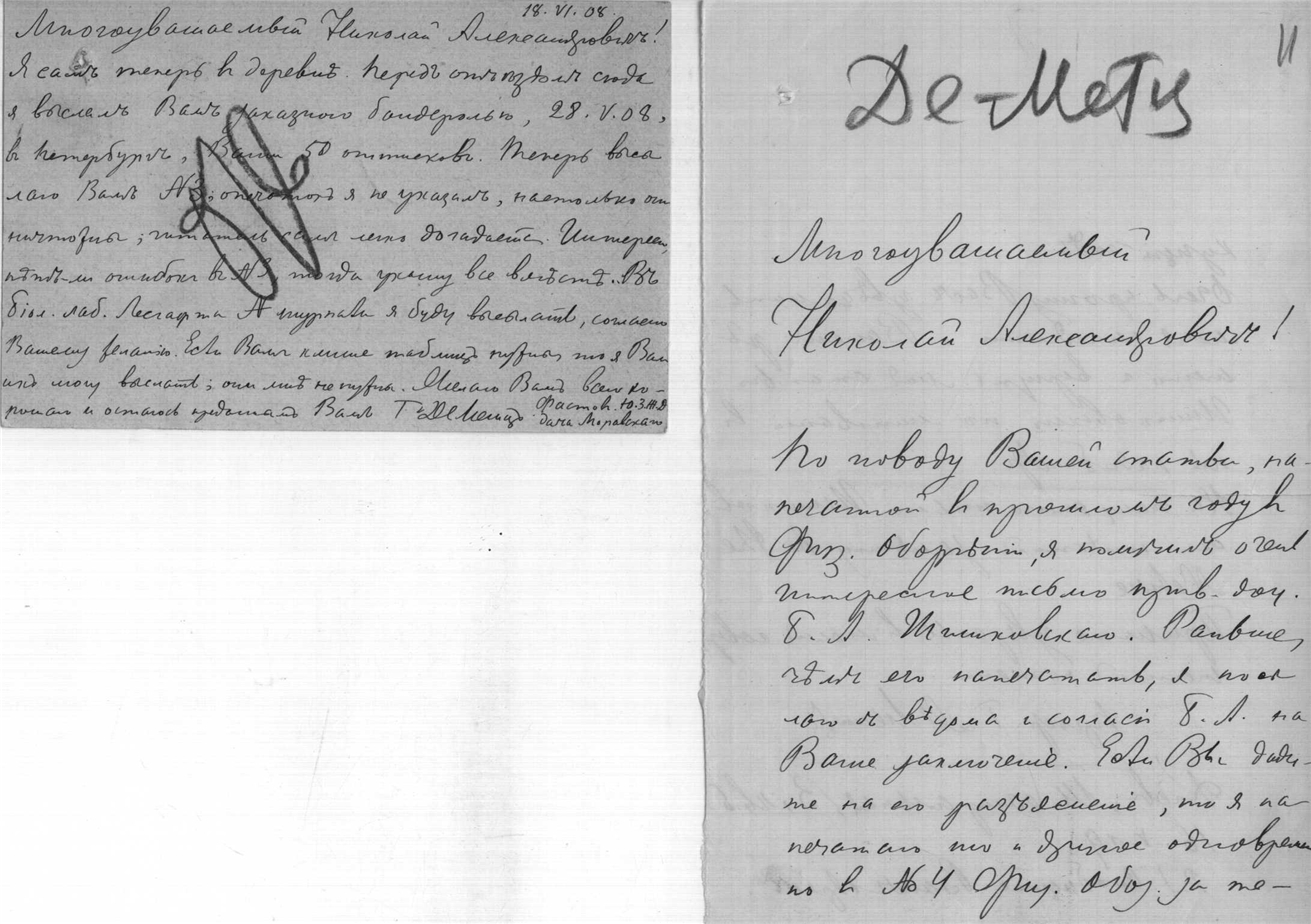 18. VI. 08.
Многоуважаемый Николай Александровичъ!
Я самъ теперь въ деревнѣ. Передъ отъѣздомъ сюда
я выслалъ Вамъ заказною бандеролью, 28. V. 08,
въ Петербургъ, Ваши 50 оттисковъ. Теперь высы
лаю Вамъ №3; опечатокъ я не указалъ, настолько они
ничтожны; читатель самъ легко догадается.
ошибокъ въ №, тогда укажу все вмѣстѣ. Въ
біол. лаб. Лесгафта № журнала я буду высылать, согласно
Вашему желанію. Если Вамъ клише таблицъ нужны, то я Вам
ихъ могу выслать; они мнѣ не нужны. Желаю Вамъ всего хо-
рошаго и остаюсь преданный Вамъ Г. Де-Метцъ
Фастов. Ю.З.Ж.Д
дача Моравскаго
11
Де-Метц
Многоуважаемый
Николай Александровичъ!
По поводу Вашей статьи, на-
печатанной въ прошломъ году въ
Физ. Обозрѣніи, я получилъ очень
интересное письмо прив.-доц.
Б. А. Шишковскаго. Раньше,
чѣмъ его напечатать, я посы
лаю съ вѣдома и согласія Б. А. на
Ваше заключеніе. Если Вы дади-
те на его разъясненіе, то я на-
печатаю то и другое одновремен
но въ №4 Физ. Обоз. за те-